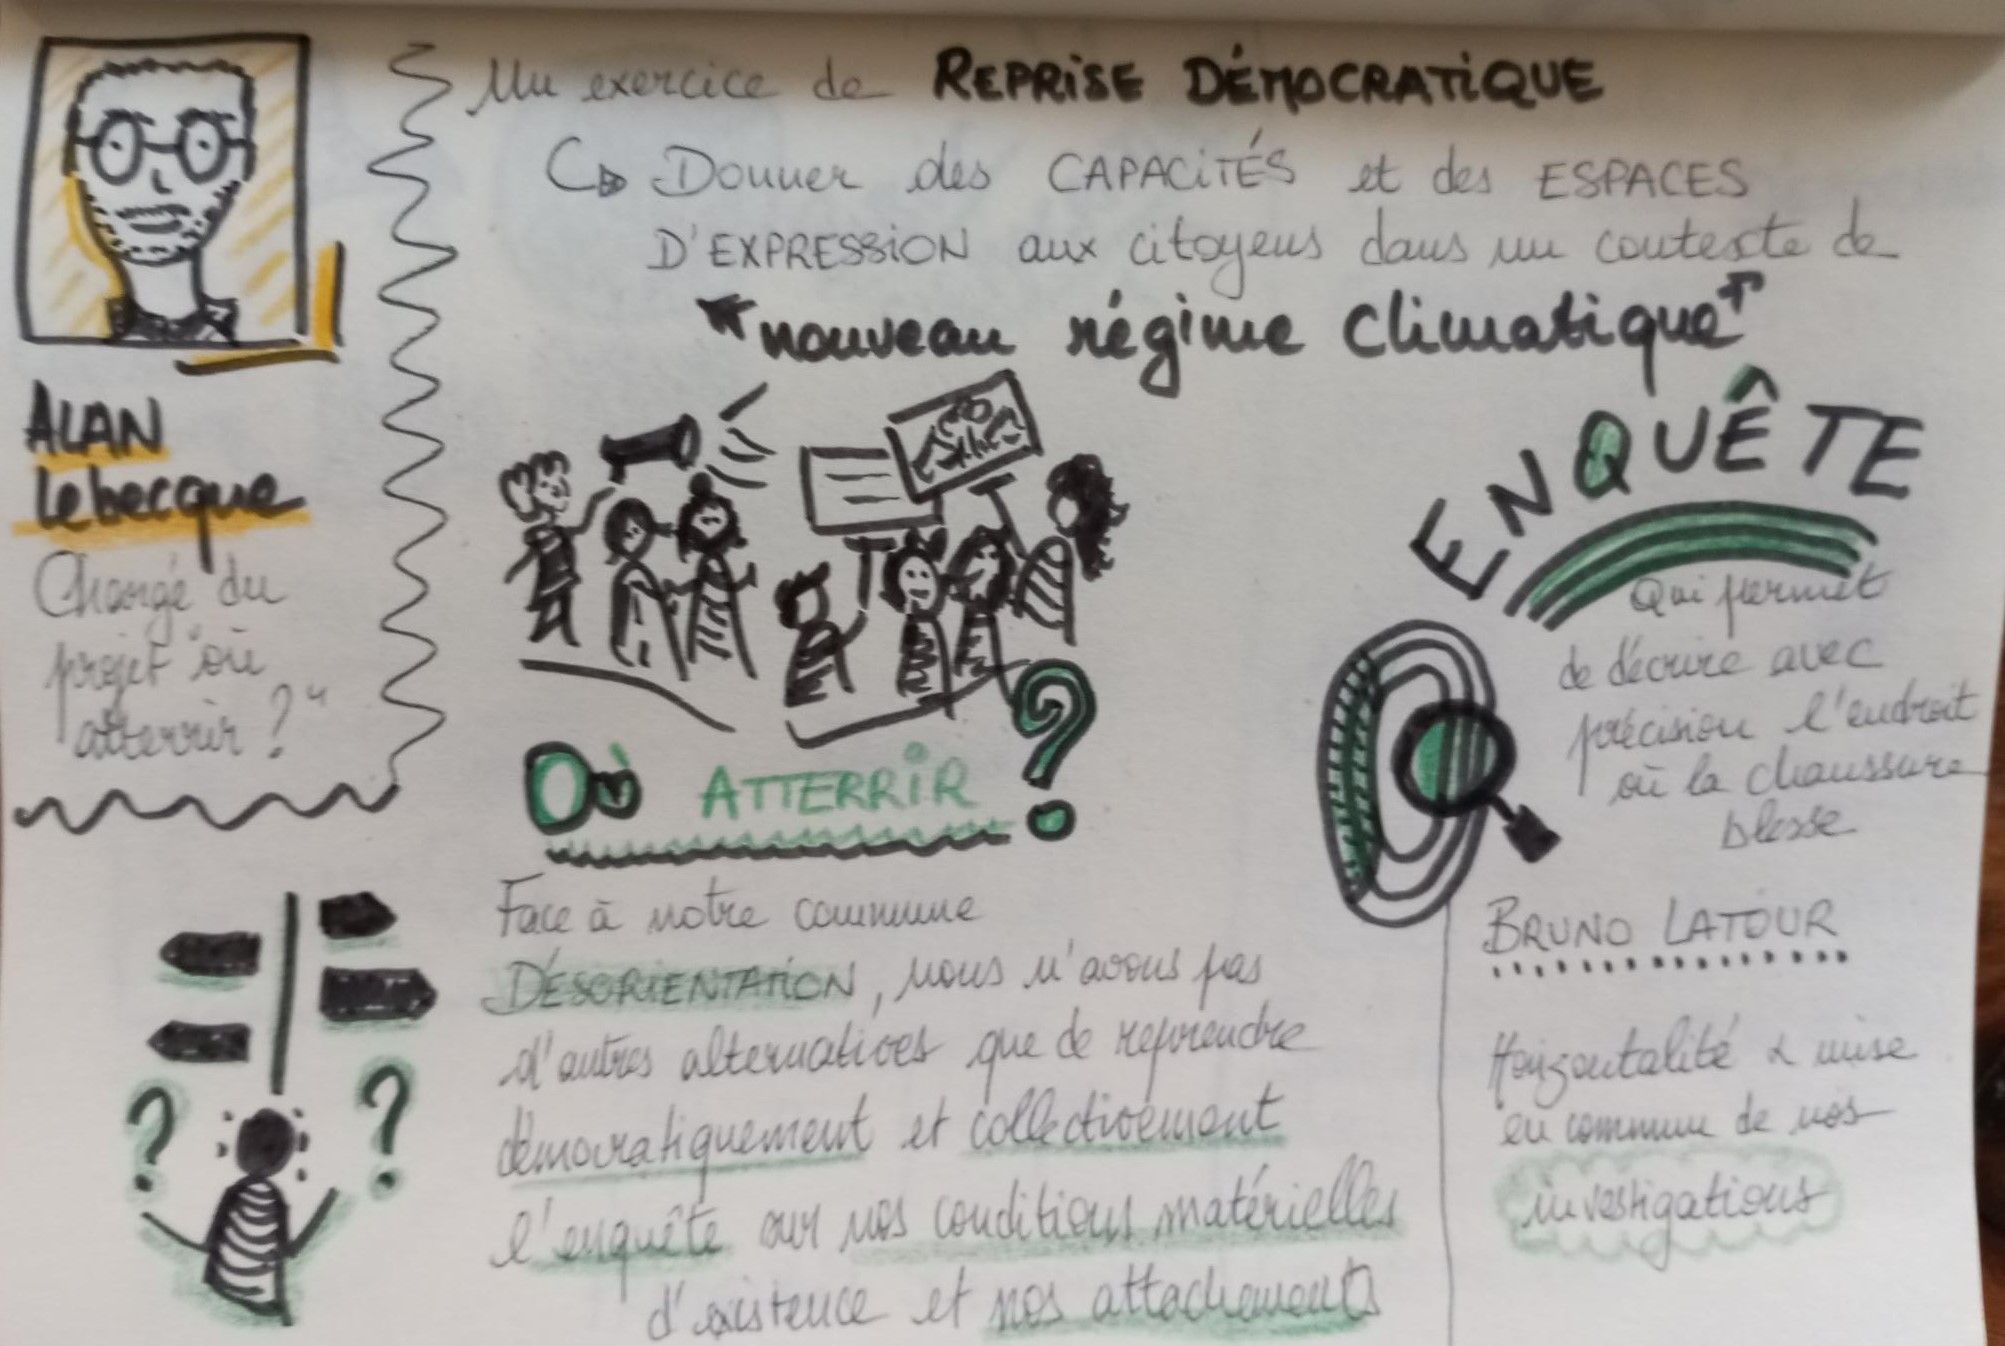 Un exercice de REPRISE DÉMOCRATIQUE
Donner des CAPACITÉS et des ESPACES
D'EXPRESSION aux citoyens dans un contexte de
"nouveau régime climatique"
ALAN
Lebecque
Chargé du
projet "où
atterrir ?"
OÙ ATTERRIR ?
Face à notre commune
DÉSORIENTATION, nous n'avons pas
d'autres alternatives que de reprendre
démocratiquement et collectivement
l'enquête sur nos conditions matérielles
d'existence et nos attachements
ENQUÊTE
Qui permet
de décrire avec
précision l'endroit
où la chaussure
blesse
BRUNO LATOUR
Horizontalité & mise
en commun de nos
investigations